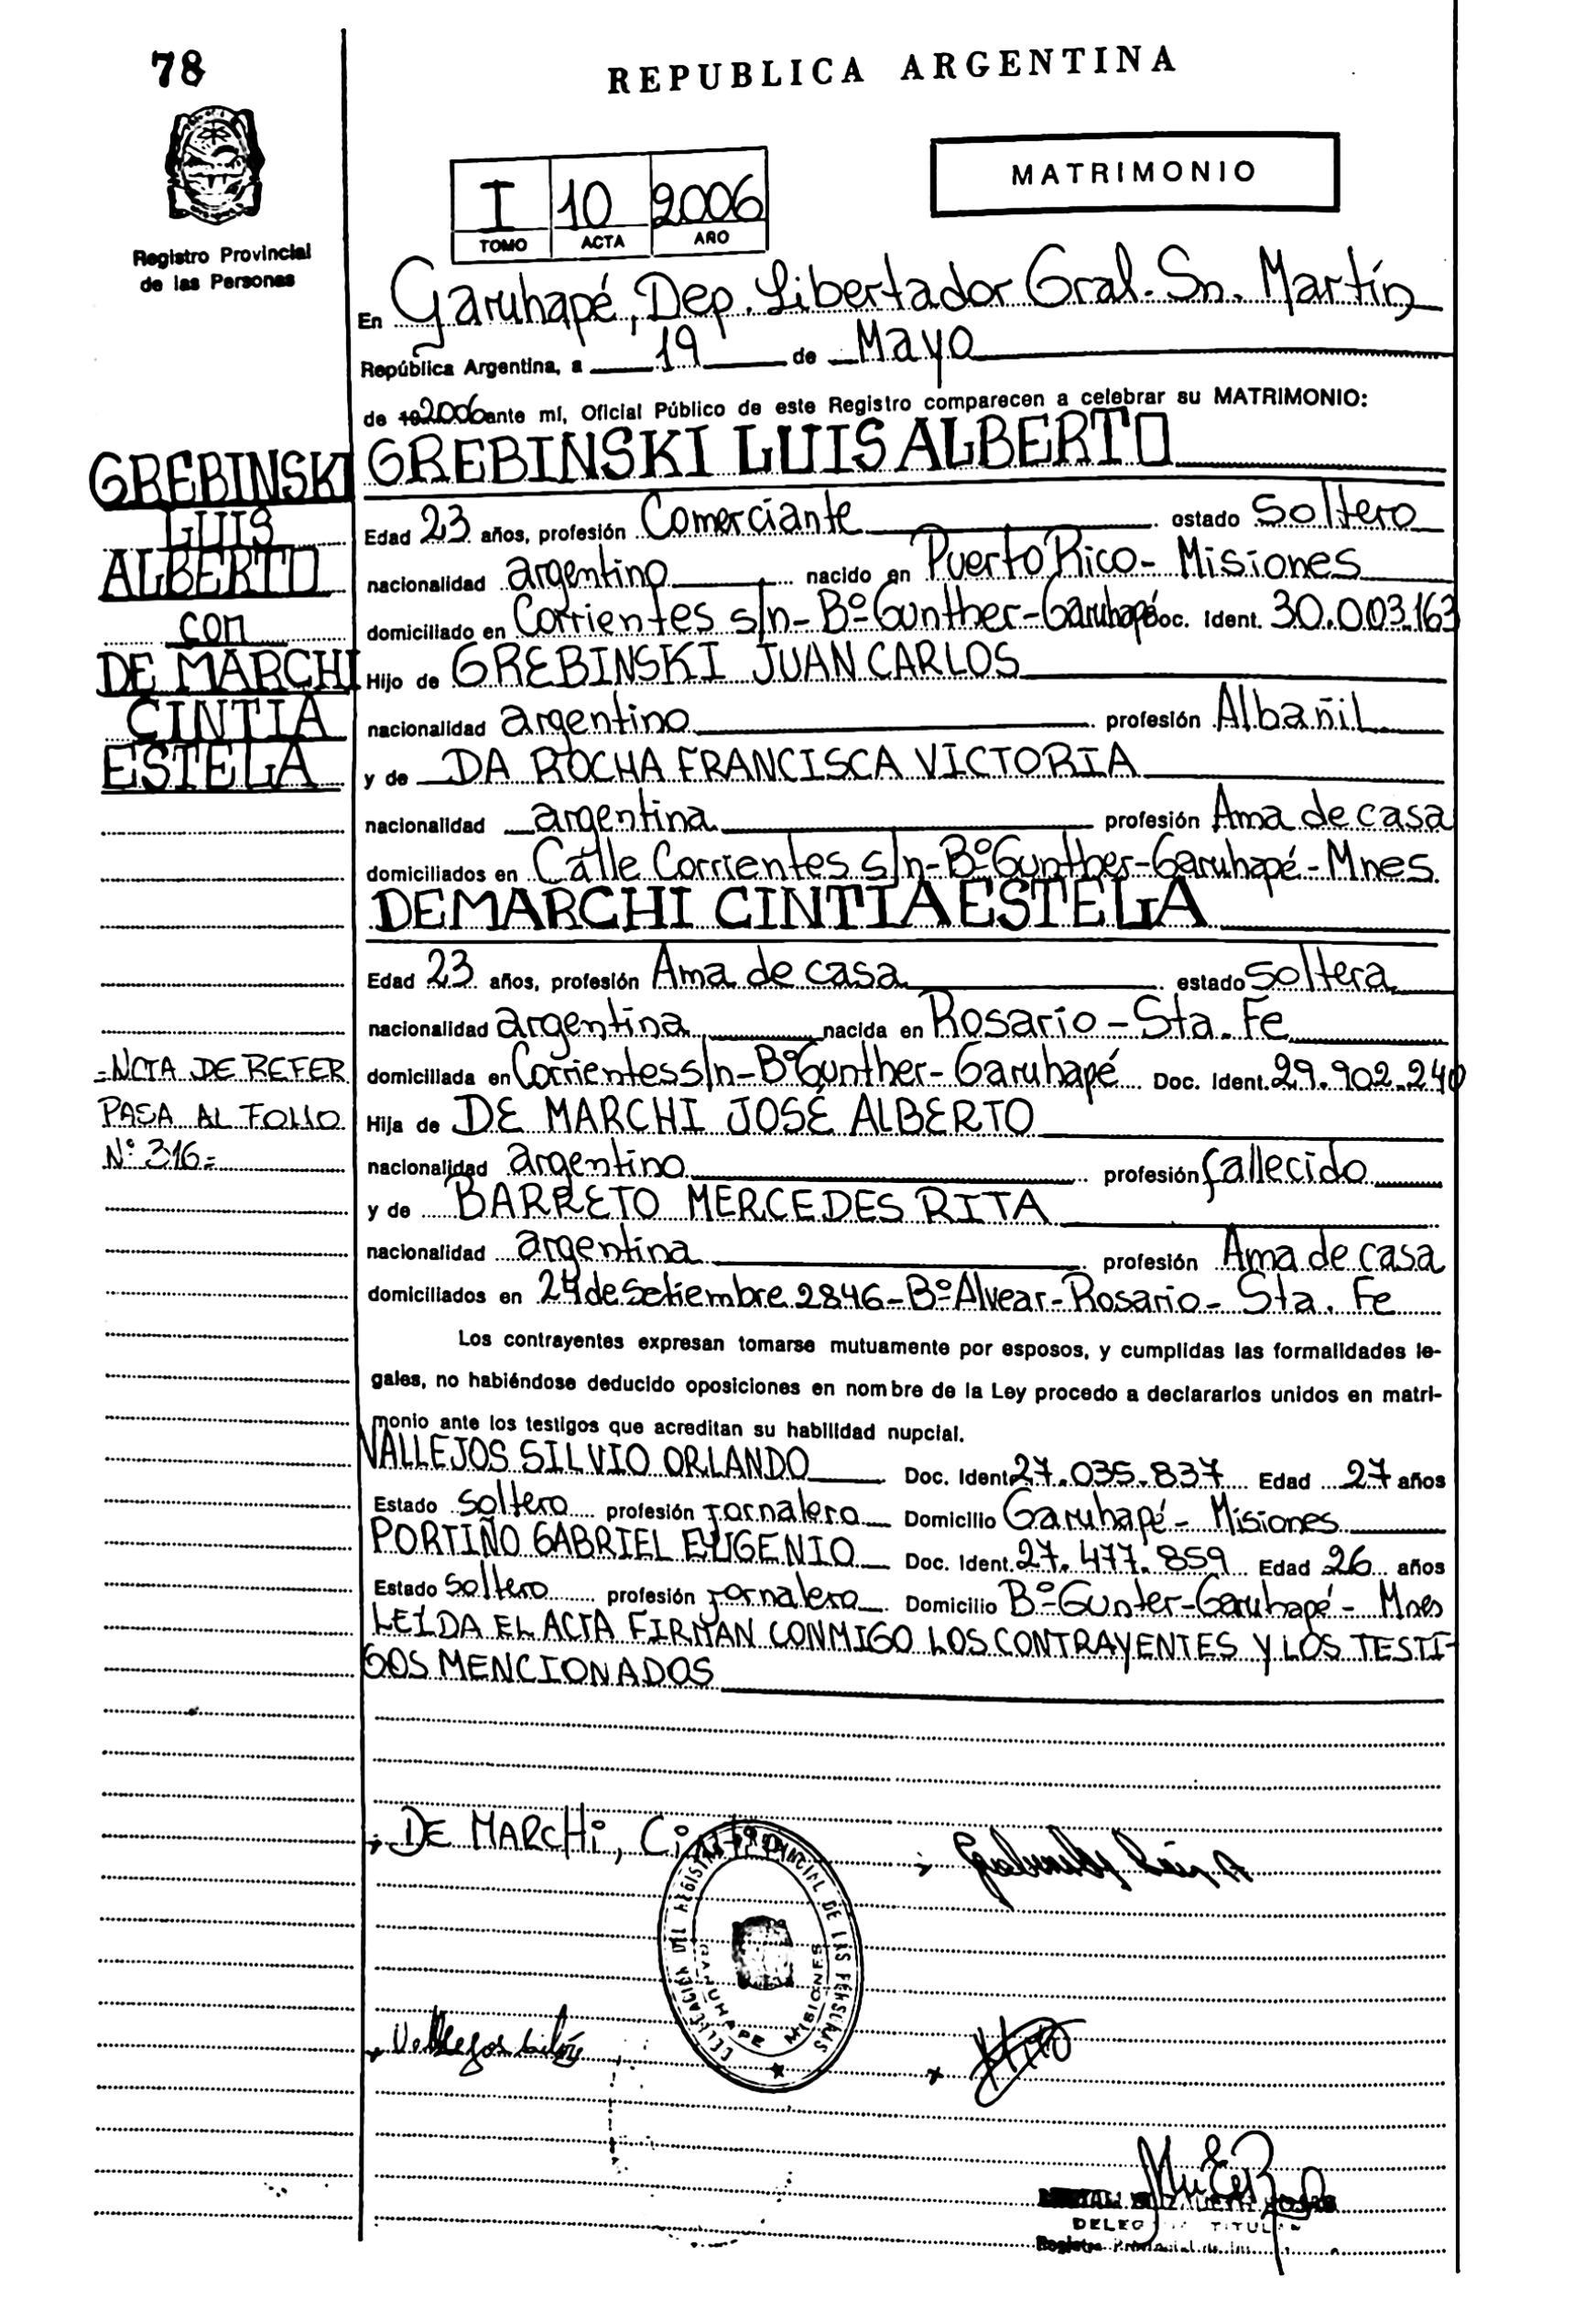 78
REPUBLICA ARGENTINA
MATRIMONIO
I 10 2006
TOMO ACTA AÑO
Registro Provincial
de las Personas
En Garuhapé, Dep. Libertador Gral. Sn. Martín
República Argentina, a 19 de Mayo
de 19 2006 ante mí, Oficial Público de este Registro comparecen a celebrar su MATRIMONIO:
GREBINSKI LUIS ALBERTO
GREBINSKI
LUIS
ALBERTO
con
DE MARCHI
CINTIA
ESTELA
Edad 23 años, profesión Comerciante estado soltero
nacionalidad argentino nacido en Puerto Rico - Misiones
domiciliado en Corrientes s/n - Bº Gunther - Garuhapé Doc. Ident. 30.003.163
Hijo de GREBINSKI JUAN CARLOS
nacionalidad argentino profesión Albañil
y de DA ROCHA FRANCISCA VICTORIA
nacionalidad argentina profesión Ama de casa
domiciliados en Calle Corrientes s/n - Bº Gunther - Garuhapé - Mnes.
DE MARCHI CINTIA ESTELA
Edad 23 años, profesión Ama de casa estado soltera
nacionalidad argentina nacida en Rosario - Sta. Fe
domiciliada en Corrientes s/n - Bº Gunther - Garuhapé Doc. Ident. 29.902.240
Hija de DE MARCHI JOSÉ ALBERTO
nacionalidad argentino profesión fallecido
y de BARRETO MERCEDES RITA
nacionalidad argentina profesión Ama de casa
domiciliados en 24 de Setiembre 2846 - Bº Alvear - Rosario - Sta. Fe
- NOTA DE REFER
PASA AL FOLIO
Nº 316 =
Los contrayentes expresan tomarse mutuamente por esposos, y cumplidas las formalidades le-
gales, no habiéndose deducido oposiciones en nombre de la Ley procedo a declararlos unidos en matri-
monio ante los testigos que acreditan su habilidad nupcial.
VALLEJOS SILVIO ORLANDO Doc. Ident. 27.035.837 Edad 27 años
Estado soltero profesión Jornalero Domicilio Garuhapé - Misiones
PORTIÑO GABRIEL EUGENIO Doc. Ident. 27.477.859 Edad 26 años
Estado soltero profesión Jornalero Domicilio Bº Gunter - Garuhapé - Mnes
LEIDA EL ACTA FIRMAN CONMIGO LOS CONTRAYENTES Y LOS TESTI-
GOS MENCIONADOS
DE MARCHi, Cintia
DELEGACION DEL REGISTRO PROVINCIAL DE LAS PERSONAS
GARUHAPE MISIONES
Vallejos Silvio
TITULAR
Registro Provincial de las